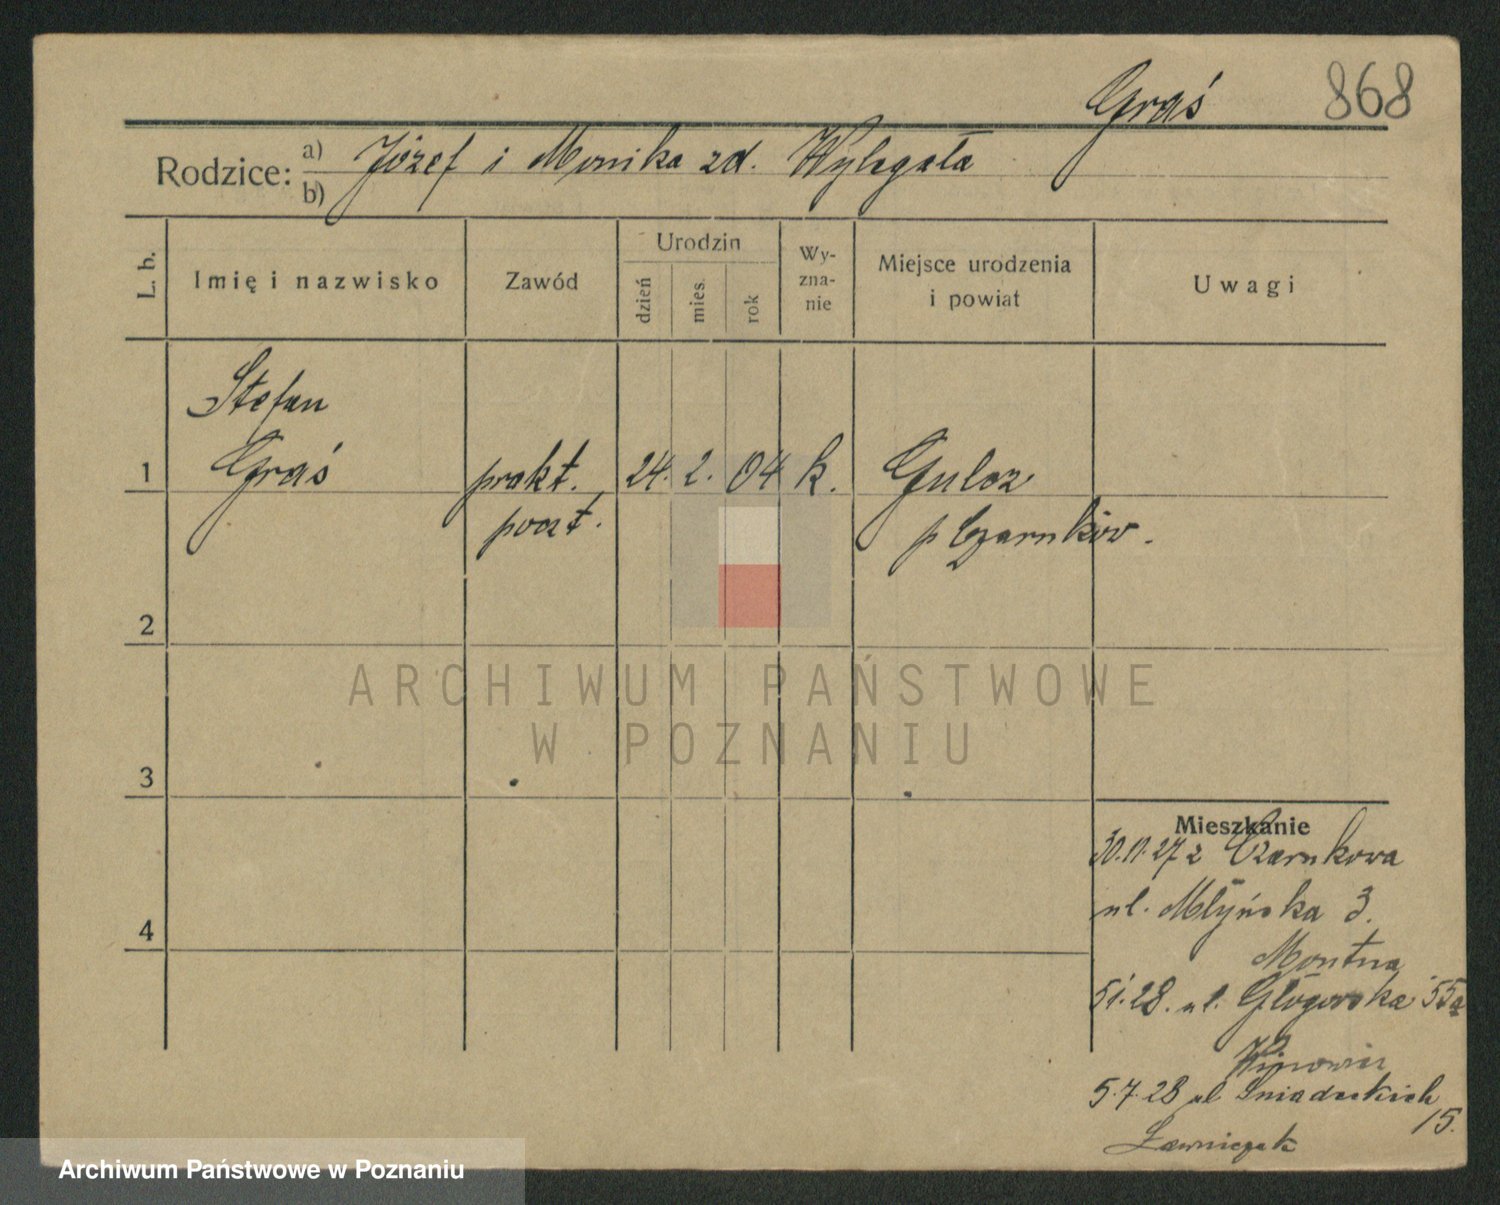 Graś
868
Rodzice: a) Józef i Monika zd. Wylegała
b)
L. b.
Imię i nazwisko
Zawód
Urodzin
dzień
mies.
rok
Wy-
zna-
nie
Miejsce urodzenia
i powiat
Uwagi
Stefan
1 Graś prakt. 24. 2. 04 k. Gulcz
poczt. p Czarnków.
2
ARCHIWUM PAŃSTWOWE
W POZNANIU
3
Mieszkanie
30.11.27 z Czarnkowa
ul. Młyńska 3.
4
Montna
5.1.28. ul. Głogowska 55a
5.7.28 ul Śniadeckich
15.
Ławniczak
Archiwum Państwowe w Poznaniu